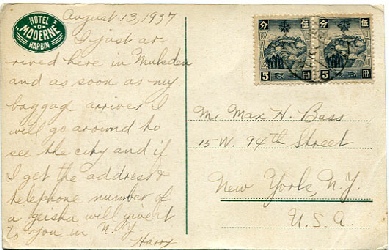 HOTEL
MODERNE
HARBIN
August 13, 1937
I just ar
rived here in Mukden
and as soon as my
baggage arrives I
will go around to
see the city and if
I get the address &
telephone number of
a geisha will give it
to you in N.Y.
Harry
分 5 5
分 5 5
Mr. Max H. Bass
15 W. 74th Street
New York, N.Y.
U.S.A.